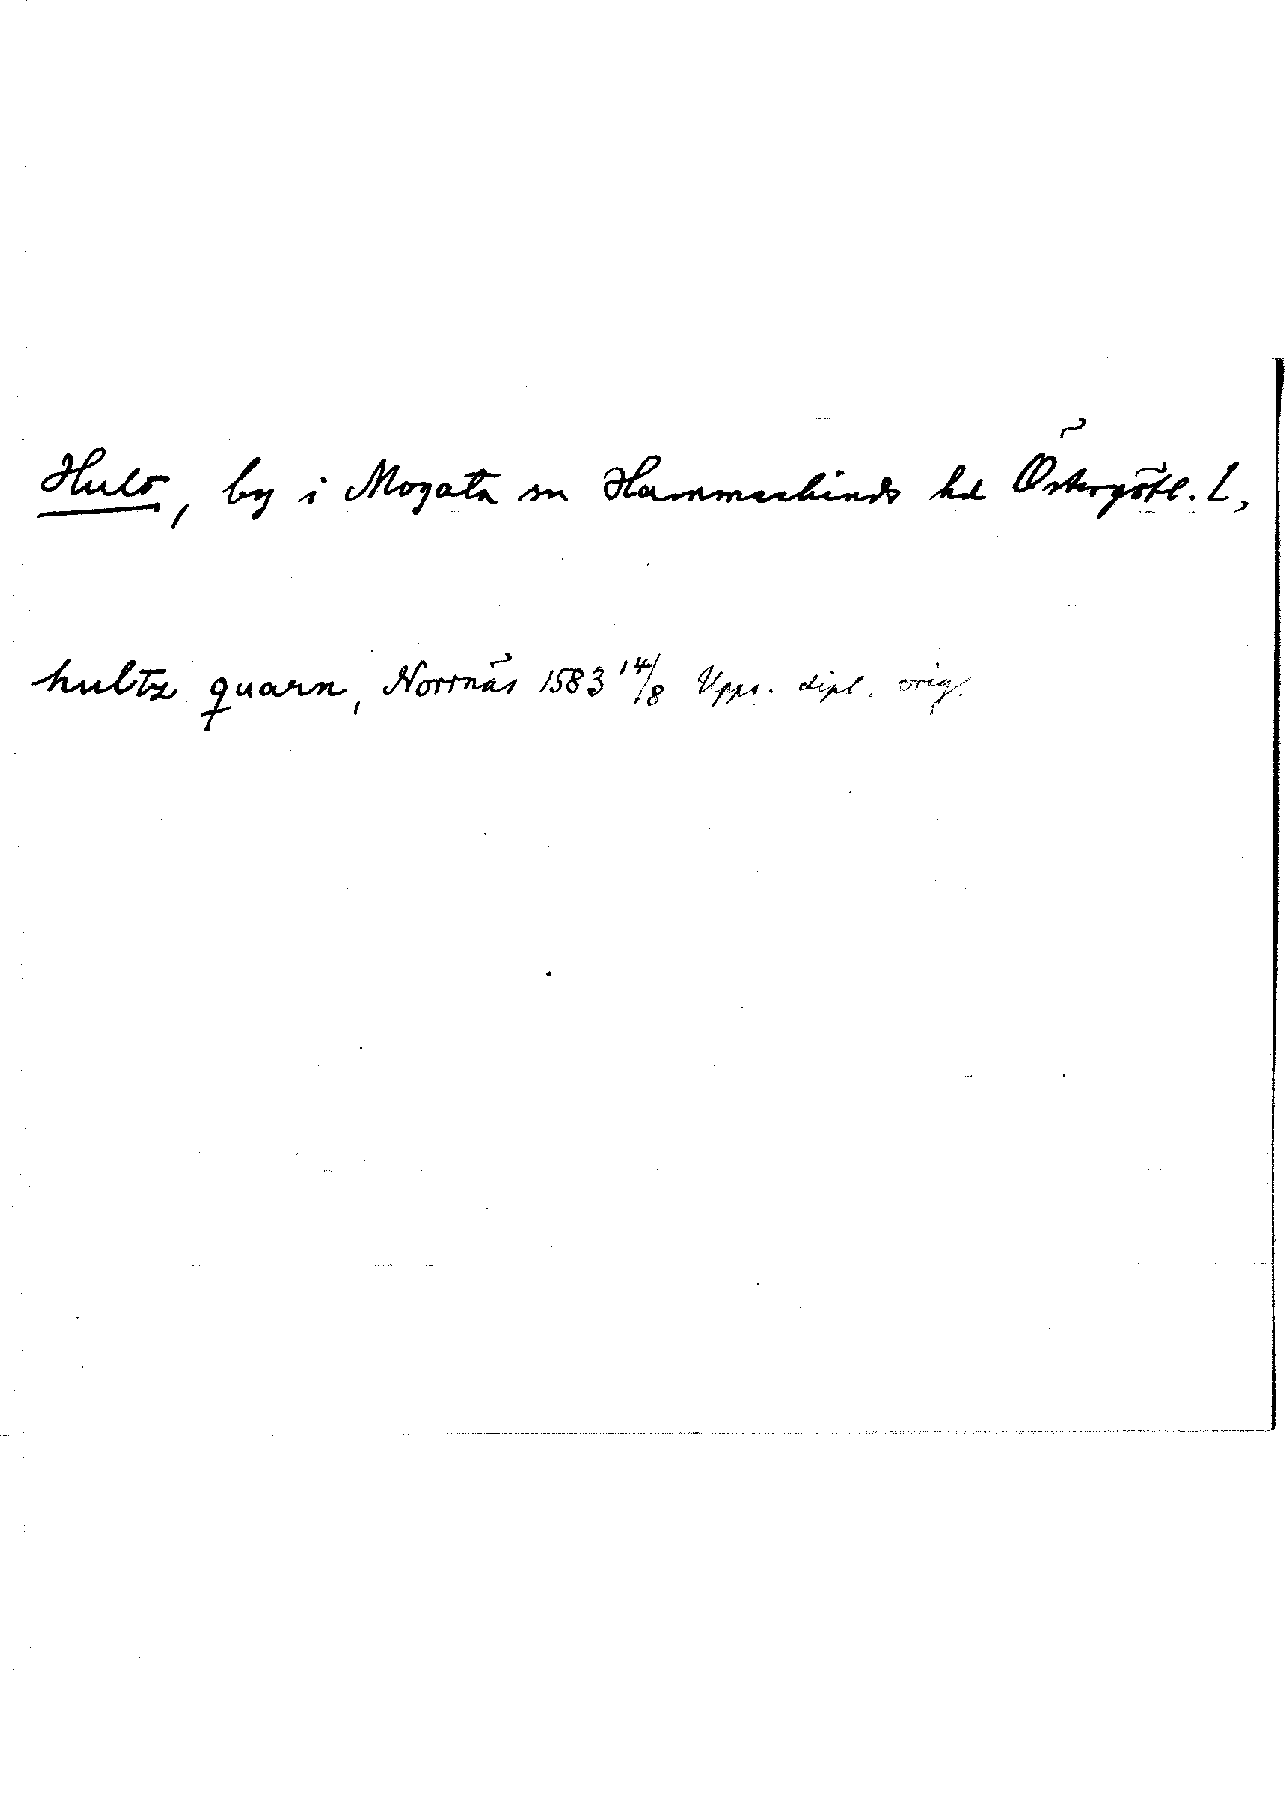 Hult, by i Mogata sn Hammarkinds hd Östergötl. L,
hultz quarn, Norrnäs 1583 14/8 Upps. dipl. orig.